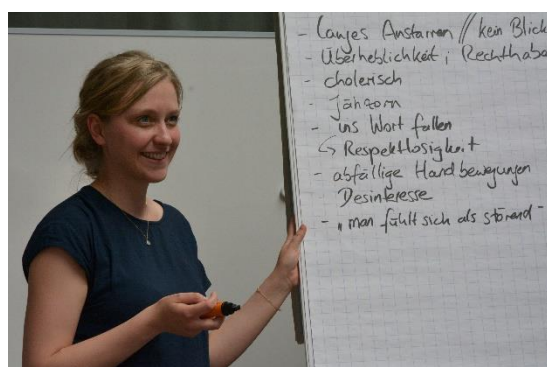 - langes Anstarren // kein Blick
- Überheblichkeit; Rechthabe
- cholerisch
- Jähzorn
- ins Wort fallen
↳ Respektlosigkeit
- abfällige Handbewegungen
Desinteresse
- "man fühlt sich als störend"